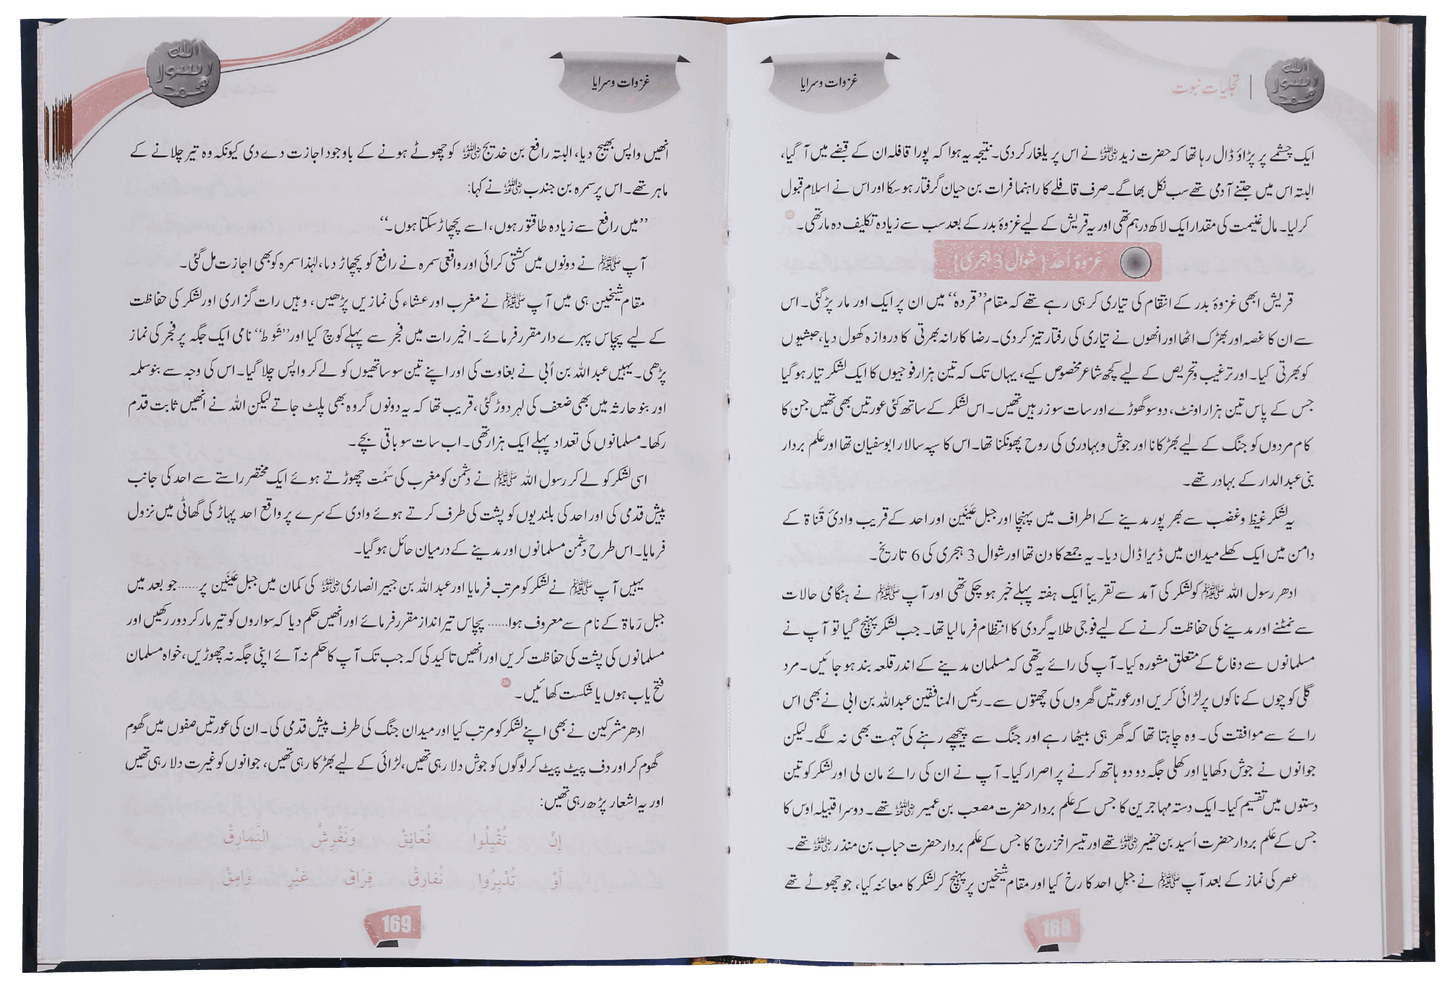 تجلیات نبوت
غزوات و سرایا
ایک چشمے پر پڑاؤ ڈال رہا تھا کہ حضرت زید ﷜ نے اس پر یلغار کر دی۔ نتیجہ یہ ہوا کہ پورا قافلہ ان کے قبضے میں آ گیا،
البتہ اس میں جتنے آدمی تھے سب نکل بھاگے۔ صرف قافلے کا راہنما فرات بن حیان گرفتار ہو سکا اور اس نے اسلام قبول
کر لیا۔ مال غنیمت کی مقدار ایک لاکھ درہم تھی اور یہ قریش کے لیے غزوۂ بدر کے بعد سب سے زیادہ تکلیف دہ مار تھی۔
غزوۂ اُحد {شوال 3 ہجری}
قریش ابھی غزوۂ بدر کے انتقام کی تیاری کر ہی رہے تھے کہ مقام ”قردہ“ میں ان پر ایک اور مار پڑ گئی۔ اس
سے ان کا غصہ اور بھڑک اٹھا اور انھوں نے تیاری کی رفتار تیز کر دی۔ رضا کارانہ بھرتی کا دروازہ کھول دیا، حبشیوں
کو بھرتی کیا۔ اور ترغیب و تحریص کے لیے کچھ شاعر مخصوص کیے، یہاں تک کہ تین ہزار فوجیوں کا ایک لشکر تیار ہو گیا
جس کے پاس تین ہزار اونٹ، دو سو گھوڑے اور سات سو زرہیں تھیں۔ اس لشکر کے ساتھ کئی عورتیں بھی تھیں جن کا
کام مردوں کو جنگ کے لیے بھڑکانا اور جوش و بہادری کی روح پھونکنا تھا۔ اس کا سپہ سالار ابوسفیان تھا اور علم بردار
بنی عبدالدار کے بہادر تھے۔
یہ لشکر غیظ و غضب سے بھرپور مدینے کے اطراف میں پہنچا اور جبل عَیْنَین اور احد کے قریب وادیٔ قَناۃ کے
دامن میں ایک کھلے میدان میں ڈیرا ڈال دیا۔ یہ جمعے کا دن تھا اور شوال 3 ہجری کی 6 تاریخ۔
ادھر رسول اللہ ﷺ کو لشکر کی آمد سے تقریباً ایک ہفتہ پہلے خبر ہو چکی تھی اور آپ ﷺ نے ہنگامی حالات
سے نمٹنے اور مدینے کی حفاظت کرنے کے لیے فوجی طلایہ گردی کا انتظام فرما لیا تھا۔ جب لشکر پہنچ گیا تو آپ نے
مسلمانوں سے دفاع کے متعلق مشورہ کیا۔ آپ کی رائے یہ تھی کہ مسلمان مدینے کے اندر قلعہ بند ہو جائیں۔ مرد
گلی کوچوں کے ناکوں پر لڑائی کریں اور عورتیں گھروں کی چھتوں سے۔ رئیس المنافقین عبداللہ بن ابی نے بھی اس
رائے سے موافقت کی۔ وہ چاہتا تھا کہ گھر ہی بیٹھا رہے اور جنگ سے پیچھے رہنے کی تہمت بھی نہ لگے۔ لیکن
جوانوں نے جوش دکھایا اور کھلی جگہ دو دو ہاتھ کرنے پر اصرار کیا۔ آپ نے ان کی رائے مان لی اور لشکر کو تین
دستوں میں تقسیم کیا۔ ایک دستہ مہاجرین کا جس کے علم بردار حضرت مصعب بن عمیر ﷜ تھے۔ دوسرا قبیلہ اوس کا
جس کے علم بردار حضرت اُسید بن حضیر ﷜ تھے اور تیسرا خزرج کا جس کے علم بردار حضرت حباب بن منذر ﷜ تھے۔
عصر کی نماز کے بعد آپ ﷺ نے جبل احد کا رخ کیا اور مقام شیخین پر پہنچ کر لشکر کا معائنہ کیا، جو چھوٹے تھے
168
غزوات و سرایا
انھیں واپس بھیج دیا، البتہ رافع بن خدیج ﷜ کو چھوٹے ہونے کے باوجود اجازت دے دی کیونکہ وہ تیر چلانے کے
ماہر تھے۔ اس پر سمرہ بن جندب ﷜ نے کہا:
”میں رافع سے زیادہ طاقتور ہوں، اسے پچھاڑ سکتا ہوں۔“
آپ ﷺ نے دونوں میں کشتی کرائی اور واقعی سمرہ نے رافع کو پچھاڑ دیا، لہٰذا سمرہ کو بھی اجازت مل گئی۔
مقام شیخین ہی میں آپ ﷺ نے مغرب اور عشاء کی نمازیں پڑھیں، وہیں رات گزاری اور لشکر کی حفاظت
کے لیے پچاس پہرے دار مقرر فرمائے۔ اخیر رات میں فجر سے پہلے کوچ کیا اور ”شَوط“ نامی ایک جگہ پر فجر کی نماز
پڑھی۔ یہیں عبداللہ بن اُبی نے بغاوت کی اور اپنے تین سو ساتھیوں کو لے کر واپس چلا گیا۔ اس کی وجہ سے بنو سلمہ
اور بنو حارثہ میں بھی ضعف کی لہر دوڑ گئی، قریب تھا کہ یہ دونوں گروہ بھی پلٹ جاتے لیکن اللہ نے انھیں ثابت قدم
رکھا۔ مسلمانوں کی تعداد پہلے ایک ہزار تھی۔ اب سات سو باقی بچے۔
اسی لشکر کو لے کر رسول اللہ ﷺ نے دشمن کو مغرب کی سمت چھوڑتے ہوئے ایک مختصر راستے سے احد کی جانب
پیش قدمی کی اور احد کی بلندیوں کو پشت کی طرف کرتے ہوئے وادی کے سرے پر واقع احد پہاڑ کی گھاٹی میں نزول
فرمایا۔ اس طرح دشمن مسلمانوں اور مدینے کے درمیان حائل ہو گیا۔
یہیں آپ ﷺ نے لشکر کو مرتب فرمایا اور عبداللہ بن جبیر انصاری ﷜ کی کمان میں جبل عَیْنَین پر...... جو بعد میں
جبل رُماۃ کے نام سے معروف ہوا...... پچاس تیر انداز مقرر فرمائے اور انھیں حکم دیا کہ سواروں کو تیر مار کر دور رکھیں اور
مسلمانوں کی پشت کی حفاظت کریں اور انھیں تاکید کی کہ جب تک آپ کا حکم نہ آئے اپنی جگہ نہ چھوڑیں، خواہ مسلمان
فتح یاب ہوں یا شکست کھائیں۔
ادھر مشرکین نے بھی اپنے لشکر کو مرتب کیا اور میدان جنگ کی طرف پیش قدمی کی۔ ان کی عورتیں صفوں میں گھوم
گھوم کر اور دف پیٹ پیٹ کر لوگوں کو جوش دلا رہی تھیں، لڑائی کے لیے بھڑکا رہی تھیں، جوانوں کو غیرت دلا رہی تھیں
اور یہ اشعار پڑھ رہی تھیں:
إِنْ تُقْبِلُوا نُعَانِقْ وَنَفْرِشُ النَّمَارِقْ
أَوْ تُدْبِرُوا نُفَارِقْ فِرَاقَ غَيْرِ وَامِقْ
169